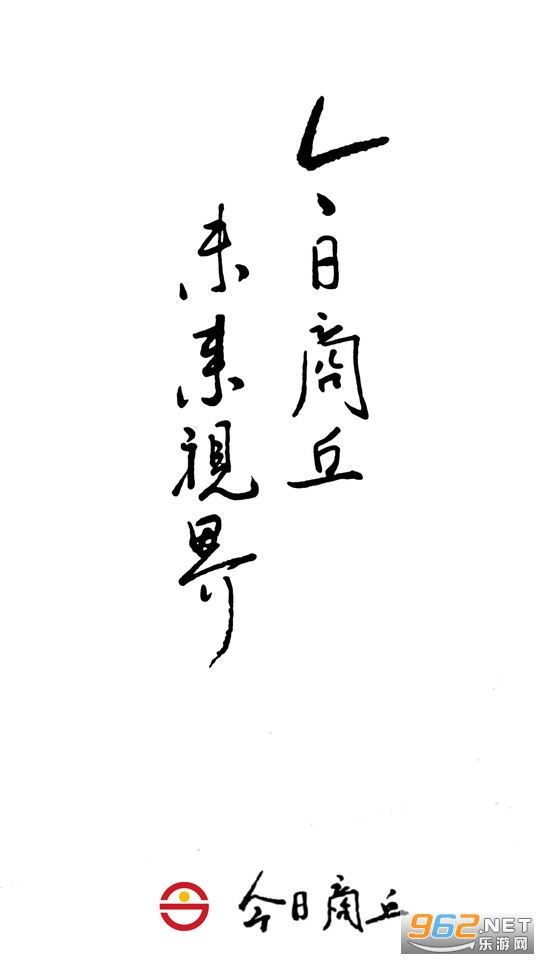 今日商丘
未来視界
今日商丘
962.NET
乐游网